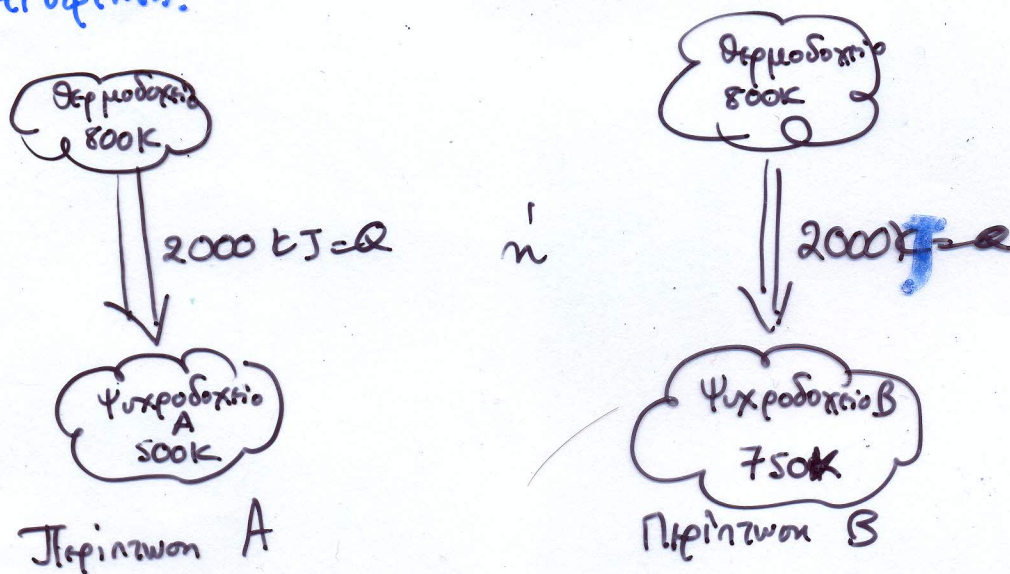 Θερμοδοχείο
800K
2000 kJ = Q
Ψυχροδοχείο
A
500K
Περίπτωση A
ή
Θερμοδοχείο
800K
2000 kJ = Q
Ψυχροδοχείο B
750K
Περίπτωση B